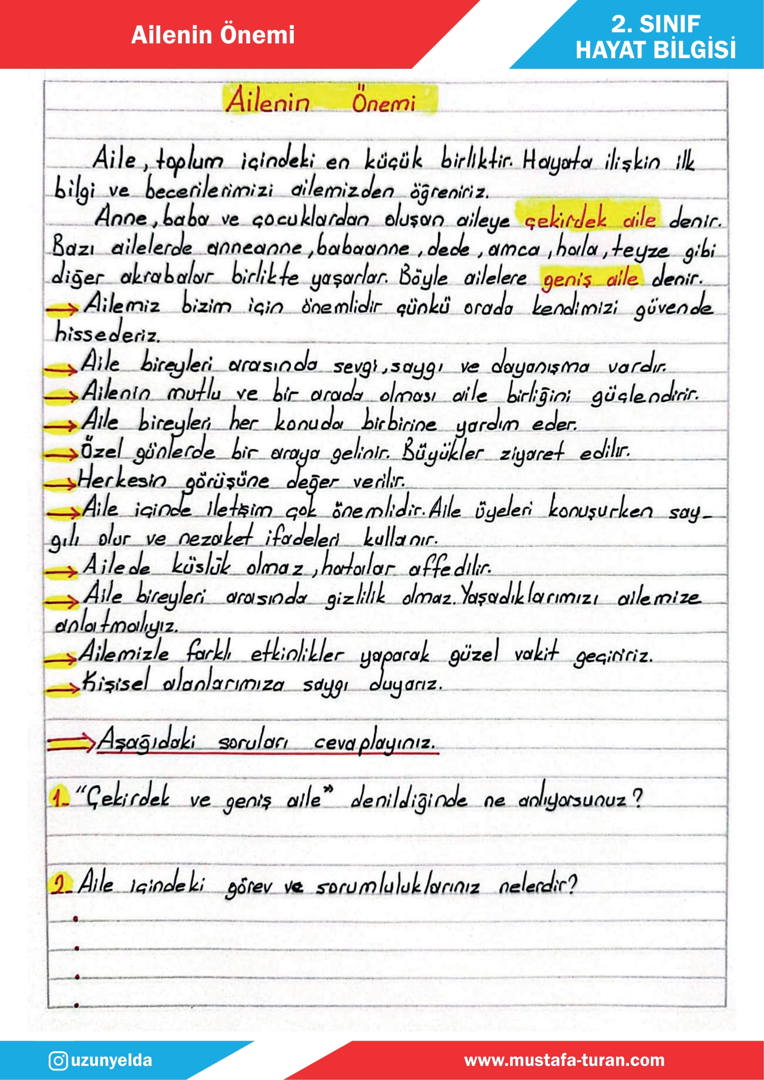 Ailenin Önemi
2. SINIF
HAYAT BİLGİSİ
Ailenin Önemi
Aile, toplum içindeki en küçük birliktir. Hayata ilişkin ilk
bilgi ve becerilerimizi ailemizden öğreniriz.
Anne, baba ve çocuklardan oluşan aileye çekirdek aile denir.
Bazı ailelerde anneanne, babaanne, dede, amca, hala, teyze gibi
diğer akrabalar birlikte yaşarlar. Böyle ailelere geniş aile denir.
→ Ailemiz bizim için önemlidir çünkü orada kendimizi güvende
hissederiz.
→ Aile bireyleri arasında sevgi, saygı ve dayanışma vardır.
→ Ailenin mutlu ve bir arada olması aile birliğini güçlendirir.
→ Aile bireyleri her konuda birbirine yardım eder.
→ Özel günlerde bir araya gelinir. Büyükler ziyaret edilir.
→ Herkesin görüşüne değer verilir.
→ Aile içinde iletişim çok önemlidir. Aile üyeleri konuşurken say-
gılı olur ve nezaket ifadeleri kullanır.
→ Ailede küslük olmaz, hatalar affedilir.
→ Aile bireyleri arasında gizlilik olmaz. Yaşadıklarımızı ailemize
anlatmalıyız.
→ Ailemizle farklı etkinlikler yaparak güzel vakit geçiririz.
→ Kişisel alanlarımıza saygı duyarız.
⇒ Aşağıdaki soruları cevaplayınız.
1- "Çekirdek ve geniş aile" denildiğinde ne anlıyorsunuz?
2- Aile içindeki görev ve sorumluluklarınız nelerdir?
•
•
•
•
uzunyelda
www.mustafa-turan.com